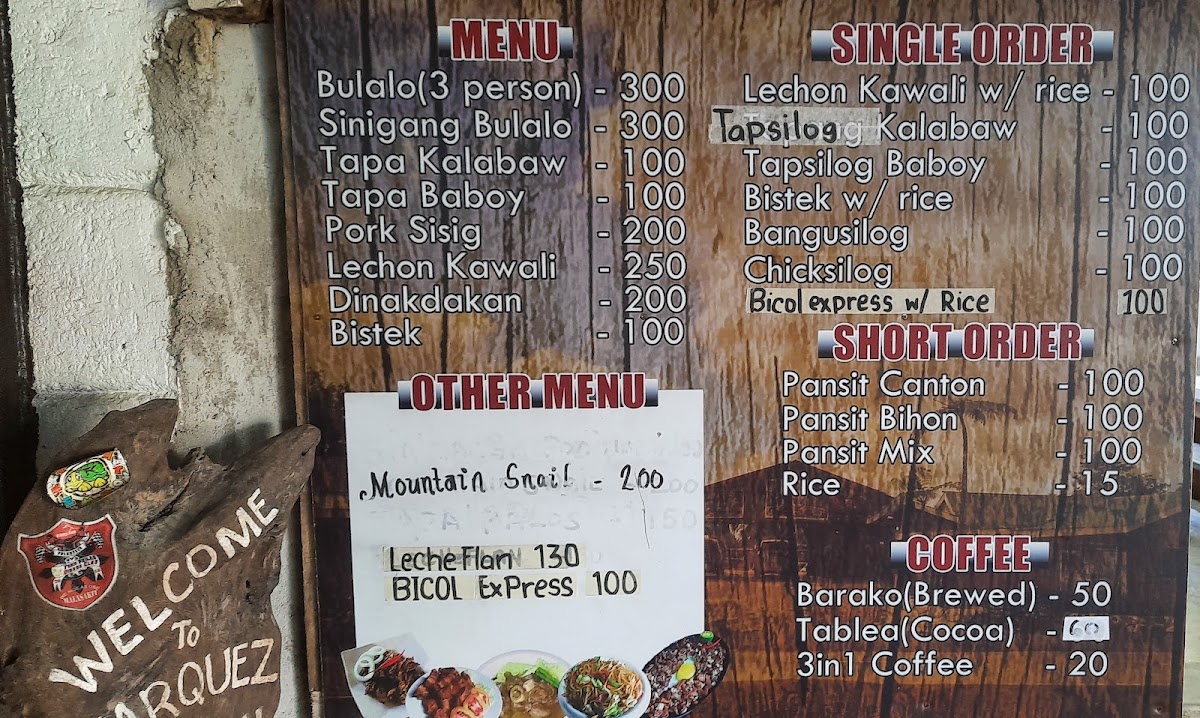 MENU
Bulalo(3 person) - 300
Sinigang Bulalo - 300
Tapa Kalabaw - 100
Tapa Baboy - 100
Pork Sisig - 200
Lechon Kawali - 250
Dinakdakan - 200
Bistek - 100
OTHER MENU
Mountain Snail - 200
Leche Flan 130
BICOL ExPress 100
SINGLE ORDER
Lechon Kawali w/ rice - 100
Tapsilog Kalabaw - 100
Tapsilog Baboy - 100
Bistek w/ rice - 100
Bangusilog - 100
Chicksilog - 100
Bicol express w/ Rice 100
SHORT ORDER
Pansit Canton - 100
Pansit Bihon - 100
Pansit Mix - 100
Rice - 15
COFFEE
Barako(Brewed) - 50
Tablea(Cocoa) - 60
3in1 Coffee - 20
WELCOME
To
ARQUEZ